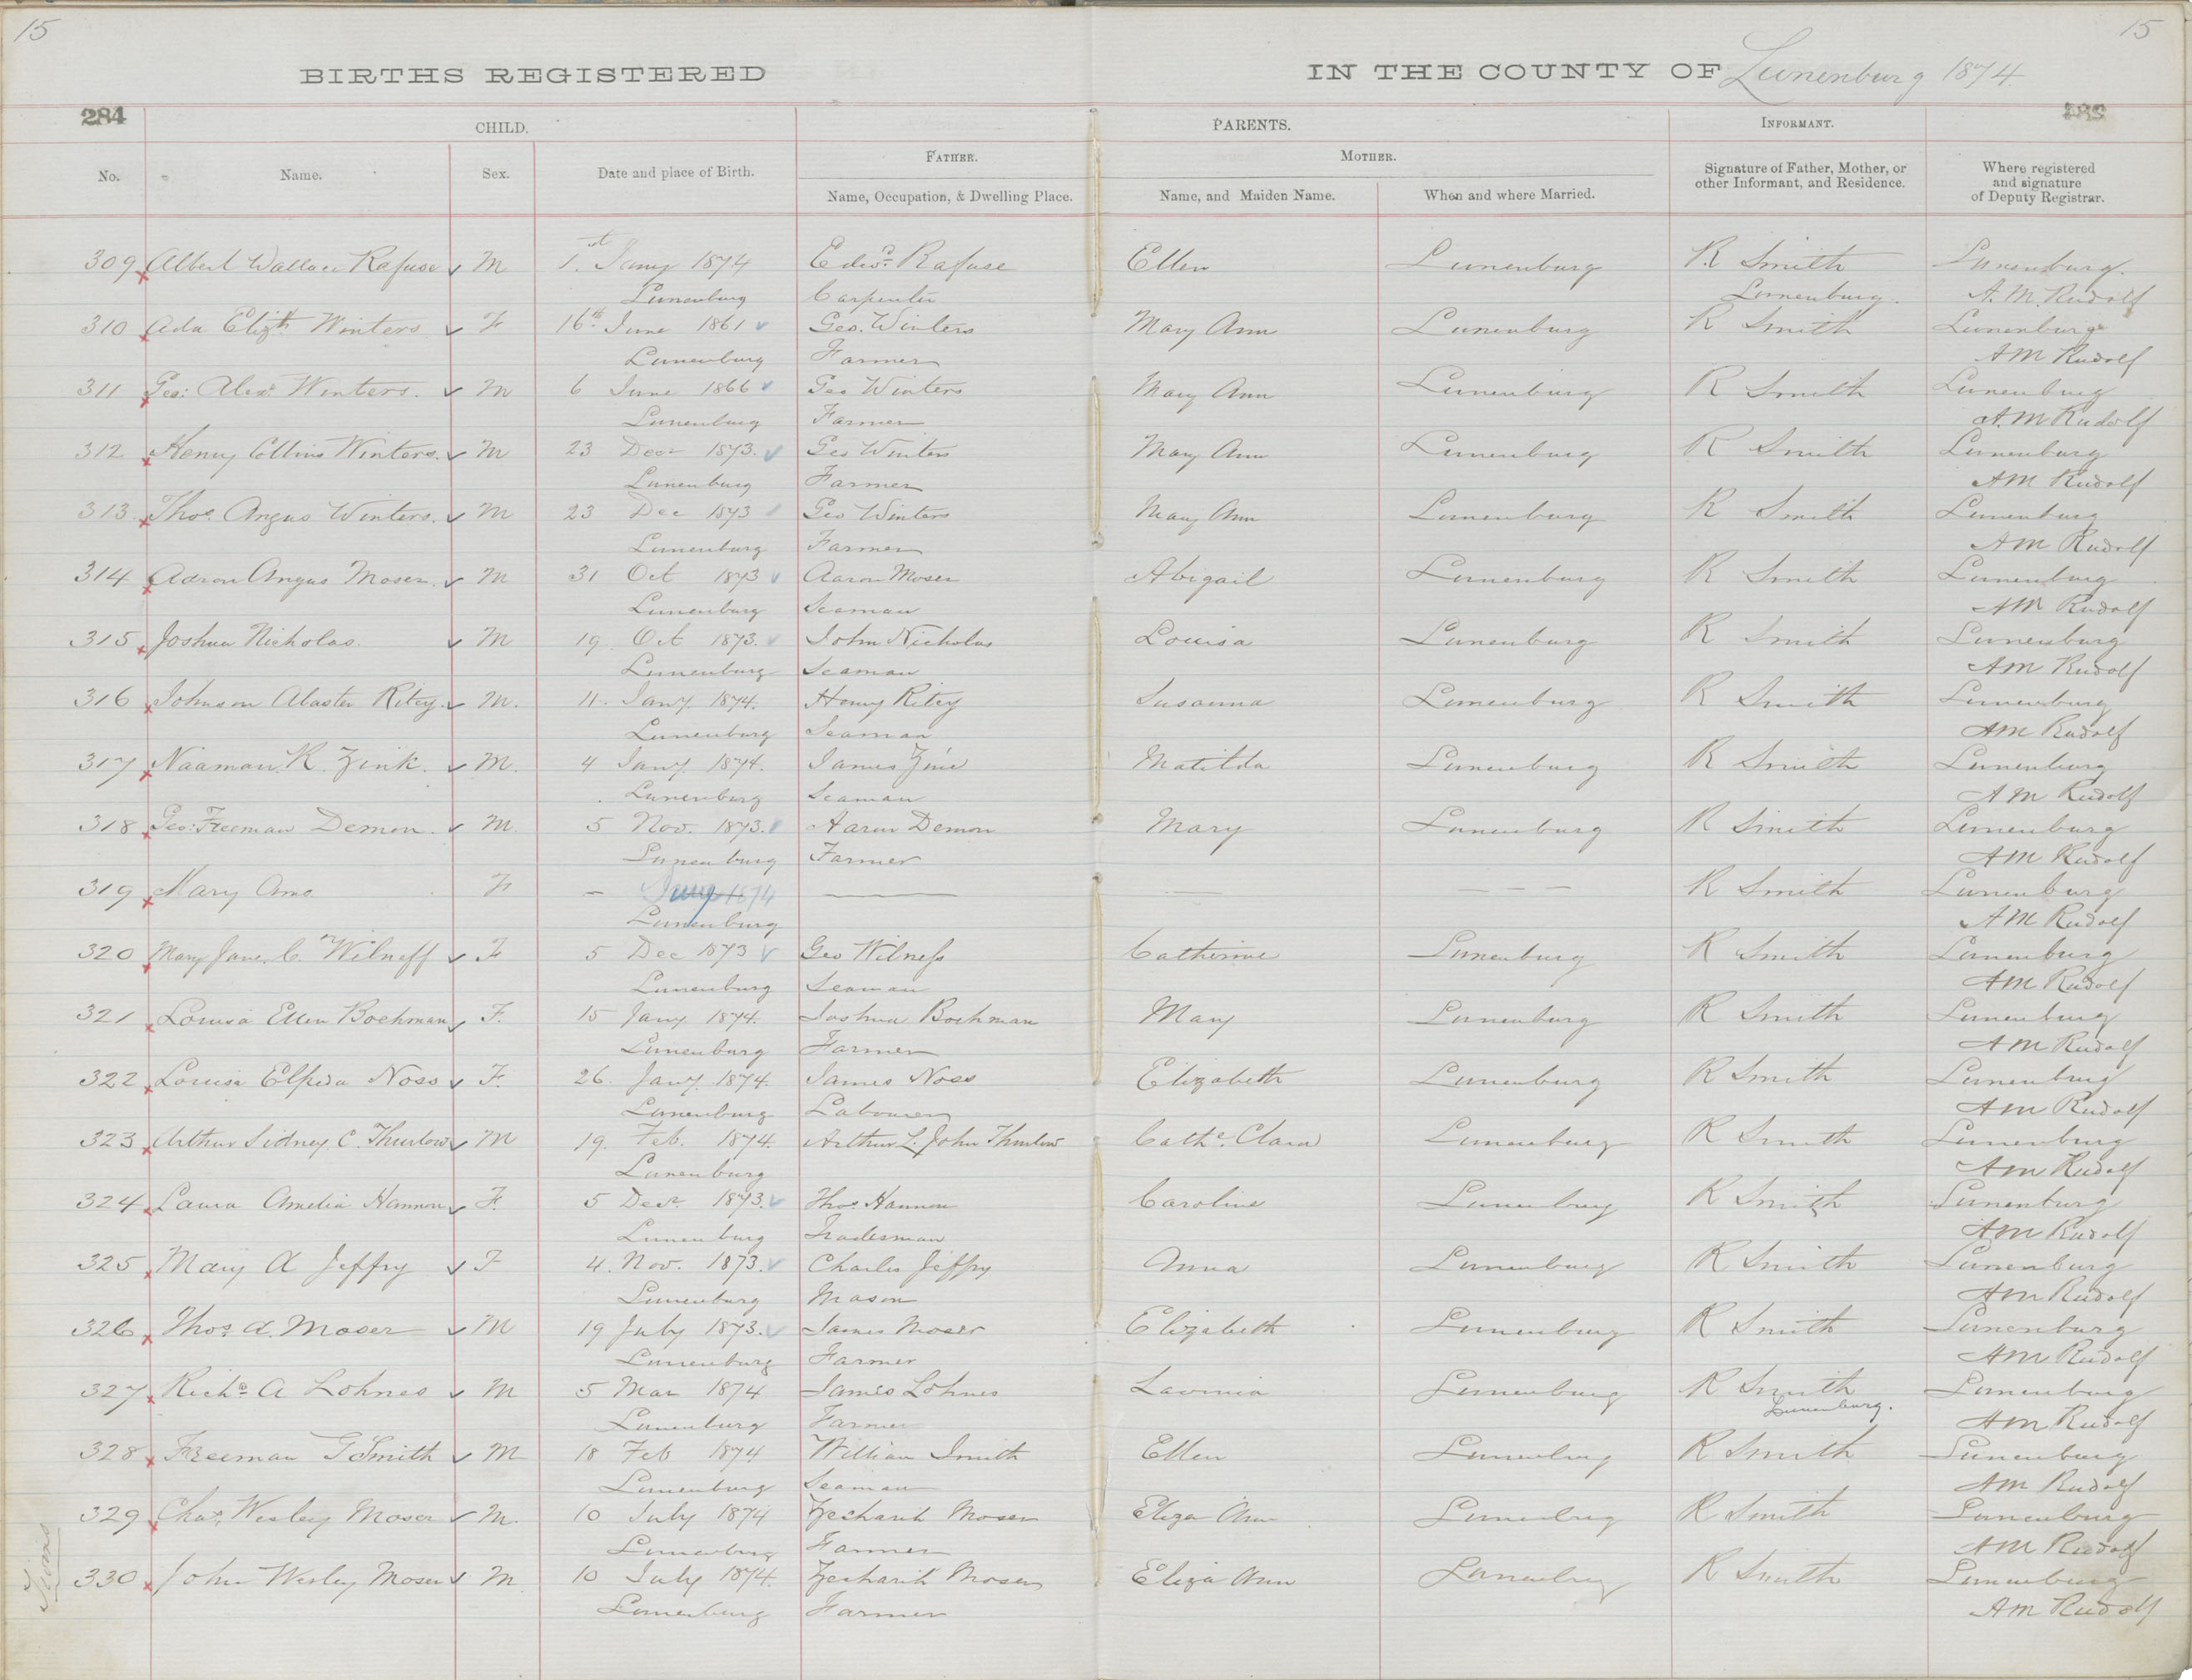 15 15
BIRTHS REGISTERED IN THE COUNTY OF Lunenburg 1874.
284
CHILD. PARENTS. INFORMANT.
FATHER. MOTHER.
No. Name. Sex. Date and place of Birth. Name, Occupation, & Dwelling Place. Name, and Maiden Name. When and where Married. Signature of Father, Mother, or other Informant, and Residence. Where registered and signature of Deputy Registrar.
309 Albert Wallace Rafuse M 1st Jany 1874 Edwd. Rafuse Ellen Lunenburg R Smith Lunenburg.
Lunenburg Carpenter Lunenburg. A. M. Rudolf
310 Ada Elizth Winters F 16th June 1861 Geo. Winters Mary Ann Lunenburg R Smith Lunenburg
Lunenburg Farmer AM Rudolf
311 Geo: Alexr Winters. M 6 June 1866 Geo Winters Mary Ann Lunenburg R Smith Lunenburg
Lunenburg Farmer A.M Rudolf
312 Henry Collins Winters. M 23 Decr 1873. Geo Winters Mary Ann Lunenburg R Smith Lunenburg
Lunenburg Farmer AM Rudolf
313 Thos. Angus Winters. M 23 Dec 1873 Geo Winters Mary Ann Lunenburg R Smith Lunenburg
Lunenburg Farmer AM Rudolf
314 Aaron Angus Moser. M 31 Oct 1873 Aaron Moser Abigail Lunenburg R Smith Lunenburg
Lunenburg Seaman AM Rudolf
315 Joshua Nicholas. M 19 Oct 1873. John Nicholas Louisa Lunenburg R Smith Lunenburg
Lunenburg Seaman AM Rudolf
316 Johnson Alaster Ritcy. M. 11. Jany. 1874. Henry Ritcy Susanna Lunenburg R Smith Lunenburg
Lunenburg Seaman AM Rudolf
317 Naaman. R. Zink. M. 4 Jany. 1874. James Matilda Lunenburg R Smith Lunenburg
Lunenburg Seaman AM Rudolf
318 Geo: Freeman Demon. M. 5 Nov. 1873. Aaron Demon Mary Lunenburg R Smith Lunenburg
Lunenburg Farmer AM Rudolf
319 Mary F – 1874 — — – – – R Smith Lunenburg
Lunenburg AM Rudolf
320 Mary Jane. C. Wilneff F 5 Dec 1873 Geo Wilneff Catherine Lunenburg R Smith Lunenburg
Lunenburg Seaman AM Rudolf
321 Louisa Ellen Bochman F. 15 Jany 1874. Joshua Bochman Mary Lunenburg R Smith Lunenburg
Lunenburg Farmer AM Rudolf
322 Louisa Elfreda Noss F. 26. Jany. 1874. James Noss Elizabeth Lunenburg R Smith Lunenburg
Lunenburg Labourer AM Rudolf
323 Arthur Sidney. C. Thurlow M 19. Feb. 1874. Arthur L. John Thurlow Cathe. Clara Lunenburg R Smith Lunenburg
Lunenburg AM Rudolf
324 Laura Amelia Hannon F. 5 Decr. 1873. Thos. Hannon Caroline Lunenburg R Smith Lunenburg
Lunenburg Tradesman AM Rudolf
325 Mary A Jeffry F 4. Nov. 1873. Charles Jeffry Anna Lunenburg R Smith Lunenburg
Lunenburg Mason AM Rudolf
326 Thos. A. Moser M 19 July 1873. James Moser Elizabeth Lunenburg R Smith Lunenburg
Lunenburg Farmer AM Rudolf
327 Richd. A Lohnes M 5 Mar 1874 James Lohnes Lavinia Lunenburg R Smith Lunenburg
Lunenburg Farmer Lunenburg. AM Rudolf
328 Freeman G Smith M 18 Feb 1874 William Smith Ellen Lunenburg R Smith Lunenburg
Lunenburg Seaman AM Rudolf
329 Chas. Wesley Moser M. 10 July 1874 Zecharih Moser Eliza Ann Lunenburg R Smith Lunenburg
Lunenburg Farmer AM Rudolf
330 John Wesley Moser M 10 July 1874. Zecharih Moser Eliza Ann Lunenburg R Smith Lunenburg
Lunenburg Farmer AM Rudolf
Twins